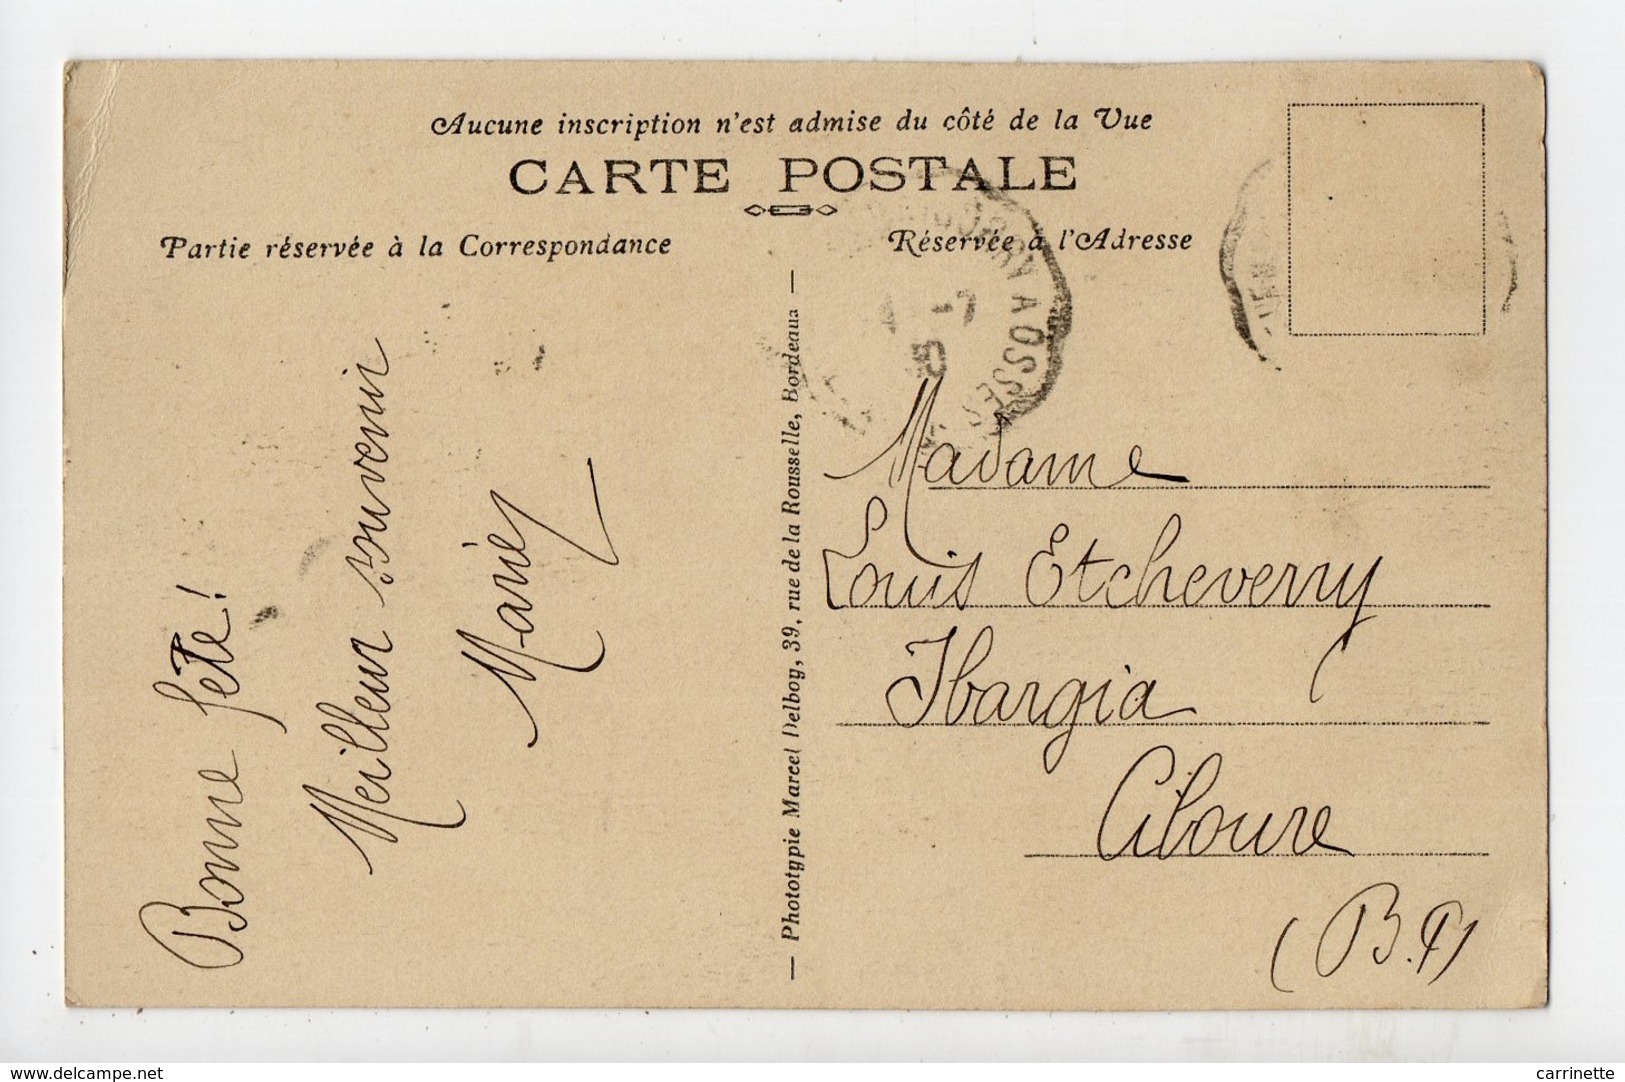 Aucune inscription n'est admise du côté de la Vue
CARTE POSTALE
Partie réservée à la Correspondance
Réservée à l'Adresse
Bonne fête!
Meilleur souvenir
Marie
— Phototypie Marcel Delboy, 39, rue de la Rousselle, Bordeaux —
A OSSES
-7
Madame
Louis Etcheverry
Ibargia
Ciboure
(B.P)
www.delcampe.net
carrinette